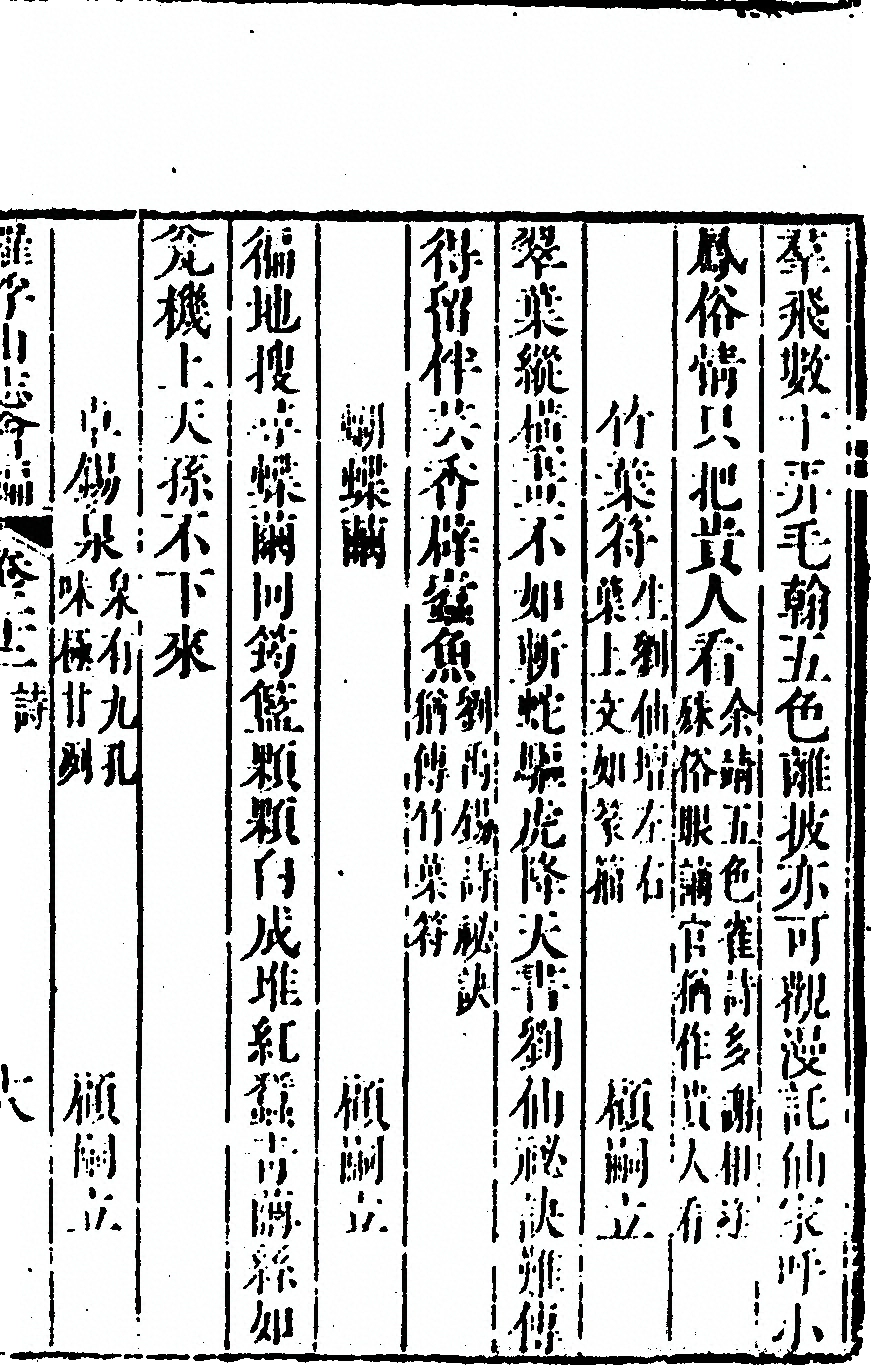 羣飛數十弄毛翰五色離披亦可觀漫託仙家呼小
鳳俗情只把貴人看余靖五色雀詩多謝相
殊俗眼謫官猶作貴人看
竹葉符生劉仙壇左右
葉上文如篆籀
顧嗣立
翠葉縱橫畫不如斬蛇驅虎降天書劉仙祕訣難傳
得留伴芸香辟蠹魚劉禹錫詩祕訣
猶傳竹葉符
蝴蝶繭
顧嗣立
徧地搜尋蝶繭回筠籃顆顆白成堆紅蠶吉繭絲如
瓮機上天孫不下來
卓錫泉泉有九孔
味極甘冽
顧嗣立
羅浮山志會編
卷二十二
詩